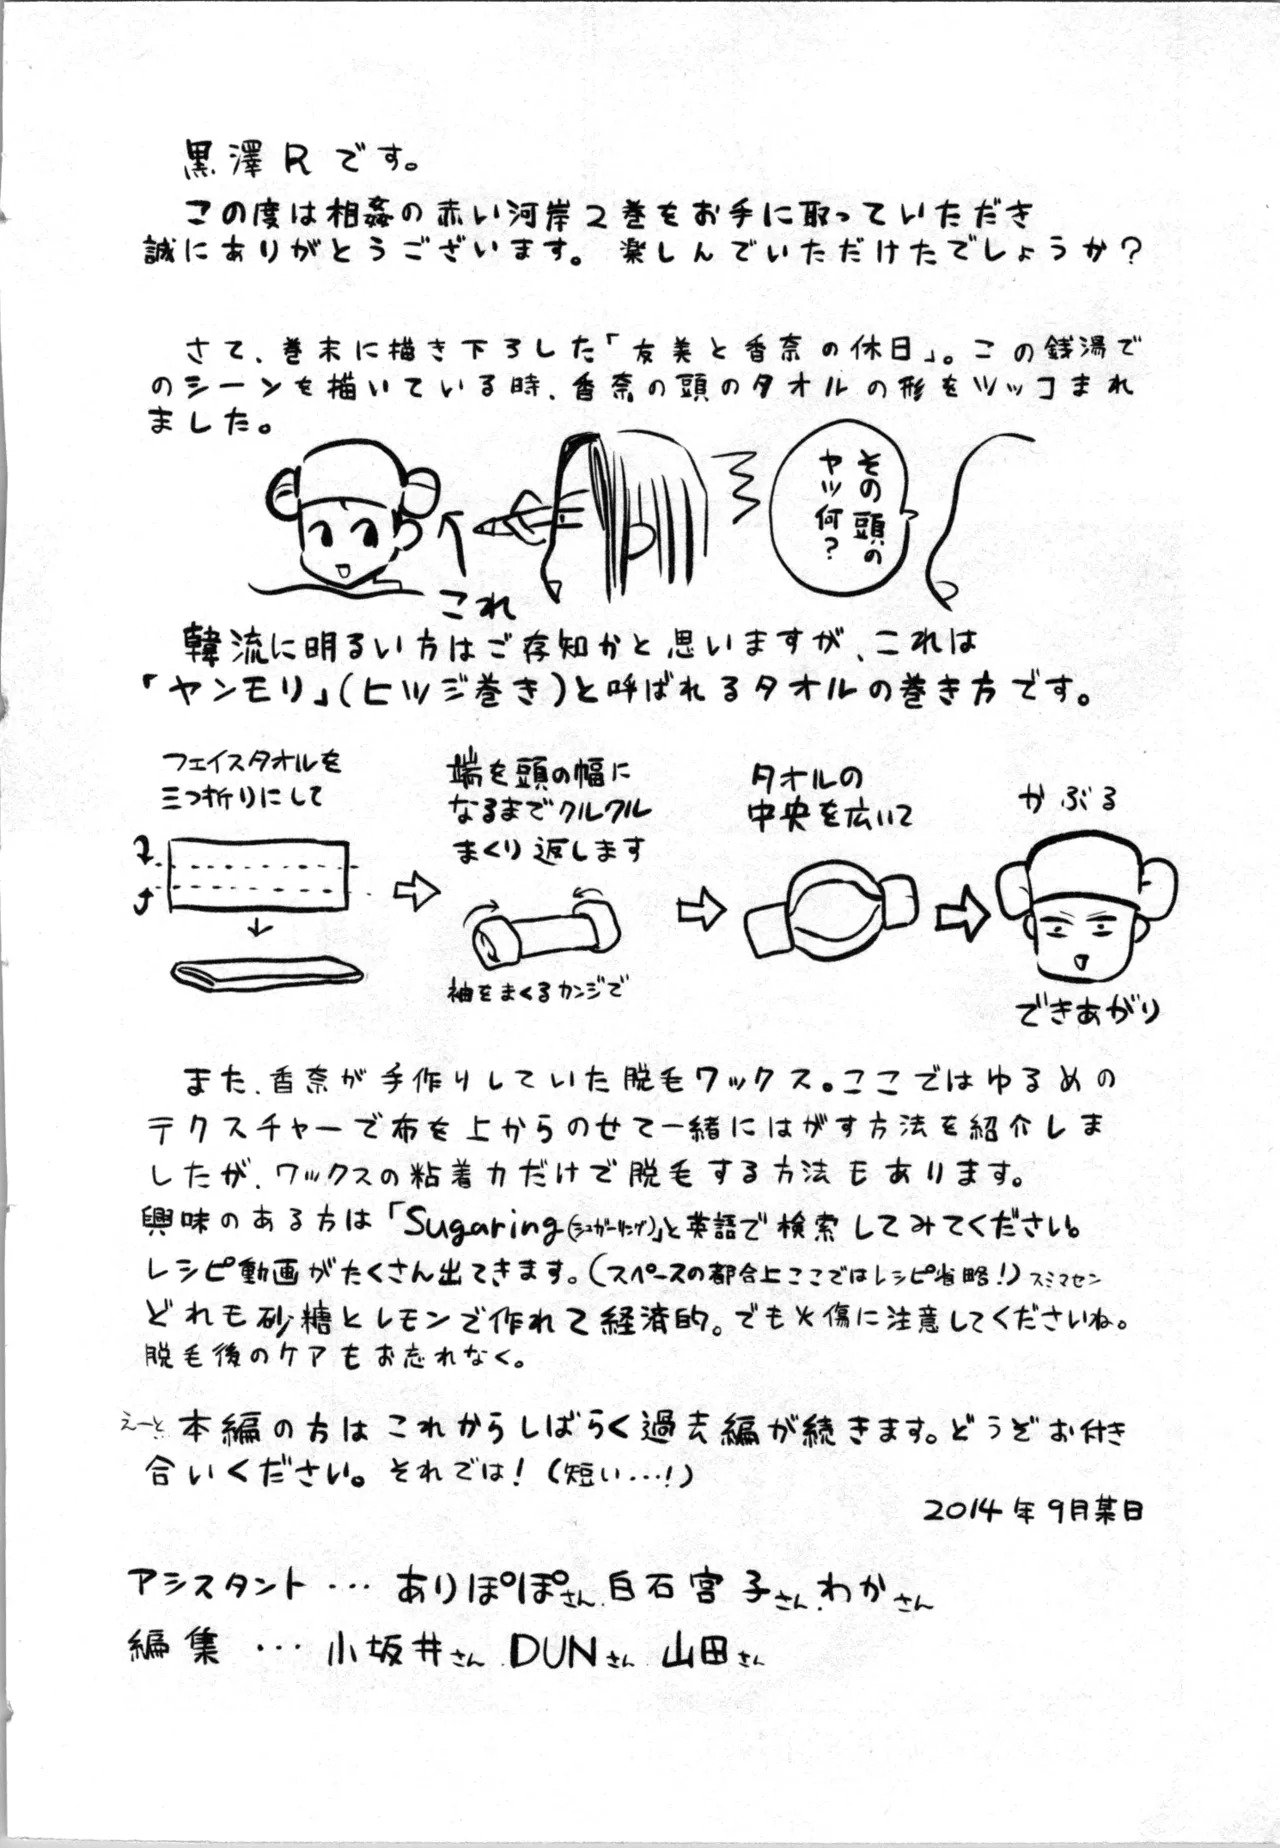 黒澤Rです。
この度は相姦の赤い河岸2巻をお手に取っていただき
誠にありがとうございます。楽しんでいただけたでしょうか?
さて、巻末に描き下ろした「友美と香奈の休日」。この銭湯で
のシーンを描いている時、香奈の頭のタオルの形をツッコまれ
ました。
その頭の
ヤツ何?
これ
韓流に明るい方はご存知かと思いますが、これは
「ヤンモリ」(ヒツジ巻き)と呼ばれるタオルの巻き方です。
フェイスタオルを
三つ折りにして
端を頭の幅に
なるまでクルクル
まくり返します
袖をまくるカンジで
タオルの
中央を広いて
かぶる
できあがり
また、香奈が手作りしていた脱毛ワックス。ここではゆるめの
テクスチャーで布を上からのせて一緒にはがす方法を紹介しま
したが、ワックスの粘着力だけで脱毛する方法もあります。
興味のある方は「Sugaring(シュガーリング)」と英語で検索してみてください。
レシピ動画がたくさん出てきます。(スペースの都合上ここではレシピ省略!)スミマセン
どれも砂糖とレモンで作れて経済的。でも火傷に注意してくださいね。
脱毛後のケアもお忘れなく。
えーと 本編の方はこれからしばらく過去編が続きます。どうぞお付き
合いください。それでは!(短い…!)
2014年9月某日
アシスタント…ありぽぽさん、白石宮子さん、わかさん
編集…小坂井さん、DUNさん、山田さん